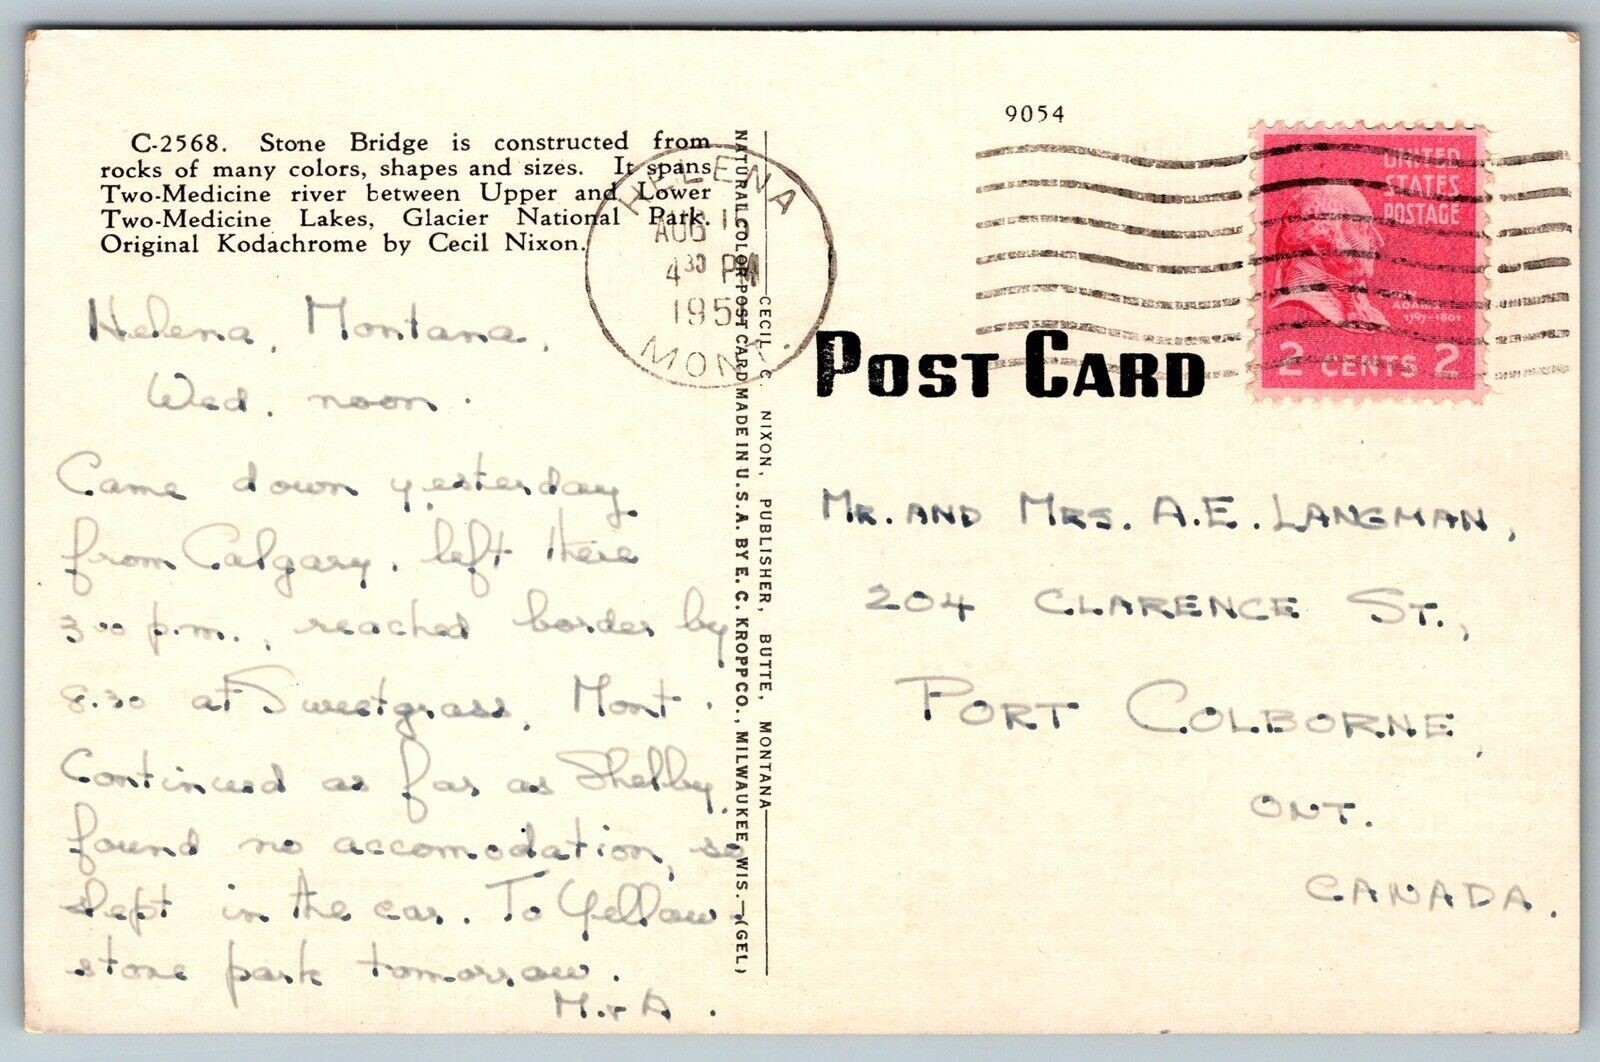 C-2568. Stone Bridge is constructed from
rocks of many colors, shapes and sizes. It spans
Two-Medicine river between Upper and Lower
Two-Medicine Lakes, Glacier National Park.
Original Kodachrome by Cecil Nixon.
HELENA
AUG 1
4 30 PM
195
MONT.
Helena, Montana,
Wed. noon.
Came down yesterday
from Calgary, left there
3 00 p.m., reached border by
8.30 at Sweetgrass, Mont.
Continued as far as Shelby,
found no accomodation, so
slept in the car. To Yellow-
stone park tomorrow.
M. & A.
NATURAL COLOR POST CARD MADE IN U.S.A. BY E. C. KROPP CO., MILWAUKEE, WIS.—(GEL)
CECIL C. NIXON, PUBLISHER, BUTTE, MONTANA
9054
UNITED
STATES
POSTAGE
JOHN
ADAMS
1797-1801
2 CENTS 2
POST CARD
MR. AND MRS. A.E. LANGMAN,
204 CLARENCE ST.,
PORT COLBORNE,
ONT.
CANADA.